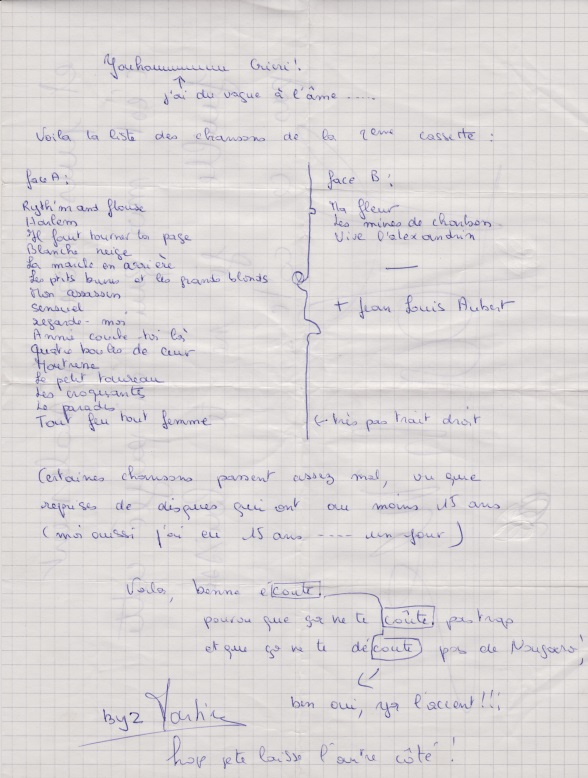 Youhouuuuuuuu Cricri!
j'ai du vague à l'âme .....
Voilà la liste des chansons de la 2ème cassette :
face A :
Ryth'm and flouze
Harlem
Il faut tourner la page
Blanche neige
La marche en arrière
Les ptits bruns et les grands blonds
Mon assassin
Sensuel
regarde-moi
Anna couche toi là
Quatre boules de cuir
Montrène
Le petit taureau
Les croquants
Le paradis
Tout feu tout femme
face B :
Ma fleur
Les mines de charbon
Vive l'alexandrin
+ Jean Louis Aubert
← très pas trait droit
Certaines chansons passent assez mal, vu que
repuses de disques qui ont au moins 15 ans
(moi aussi j'ai eu 15 ans ---- un jour)
Voilà, bonne écoute.
pourvu que ça ne te coûte pas trop
et que ça ne te découte pas de Nougaro!
ben oui, ya l'accent!!!
by2
hop je te laisse l'autre côté !